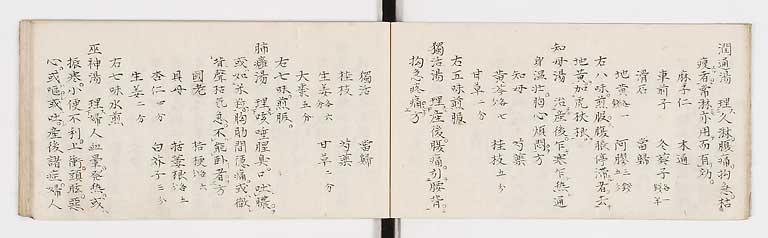 潤通湯 理久淋腹痛拘急枯
瘦者常淋亦用而有効
麻子仁 木通
車前子 冬葵子各一
滑石 當歸
地黃 阿膠
右八味煎服腹脹停滯者去
地黃加虎杖根
知母湯 治産後乍寒乍熱通
身温壯胸心煩悶方
知母 芍薬
黄芩 桂枝五分
甘草二分
右五味煎服
獨活湯 理産後腹痛引腰背
拘急疼痛方
獨活 當歸
桂枝 芍薬
生姜各六 甘草二分
大棗五分
右七味煎服
肺癰湯 理咳唾腥臭吐膿
或如米粥胸肋間隱痛或微
咳聲枯気急不能卧者方
國老 桔梗
貝母 栝蔞根
杏仁四分 白芥子三分
生姜二分
右七味水煎
巫神湯 理婦人血暈發熱或
振寒小便不利上衝頭眩惡
心或嘔或吐産後諸症婦人